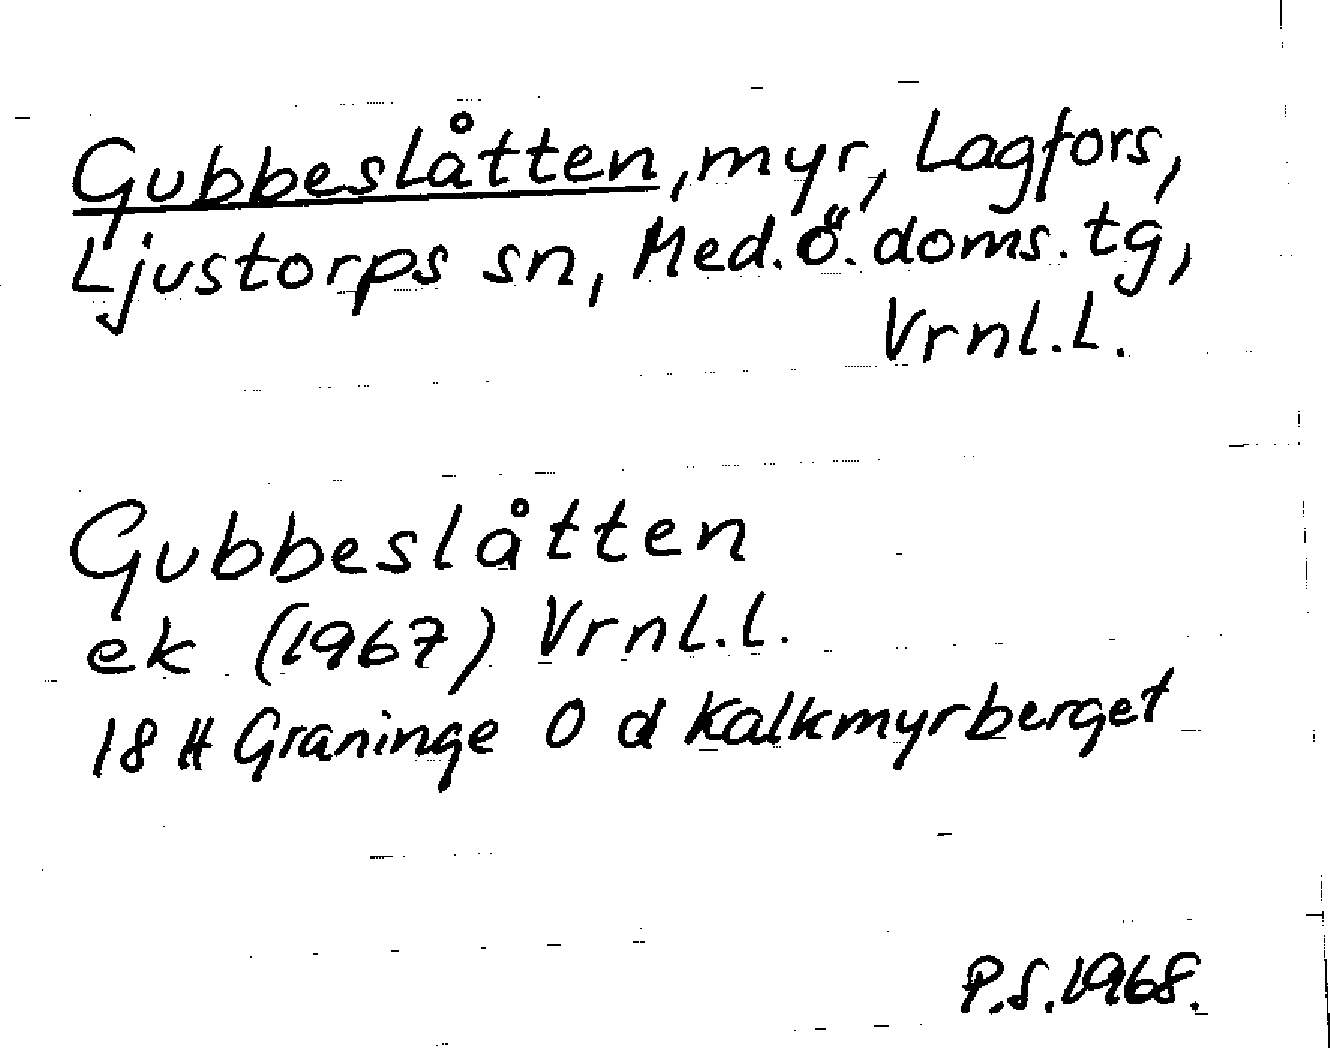 Gubbeslåtten, myr, Lagfors,
Ljustorps sn, Med. Ö. doms. tg,
Vrnl. L.
Gubbeslåtten
ek (1967) Vrnl. L.
18 H Graninge O d Kalkmyrberget
P.S. 1968.